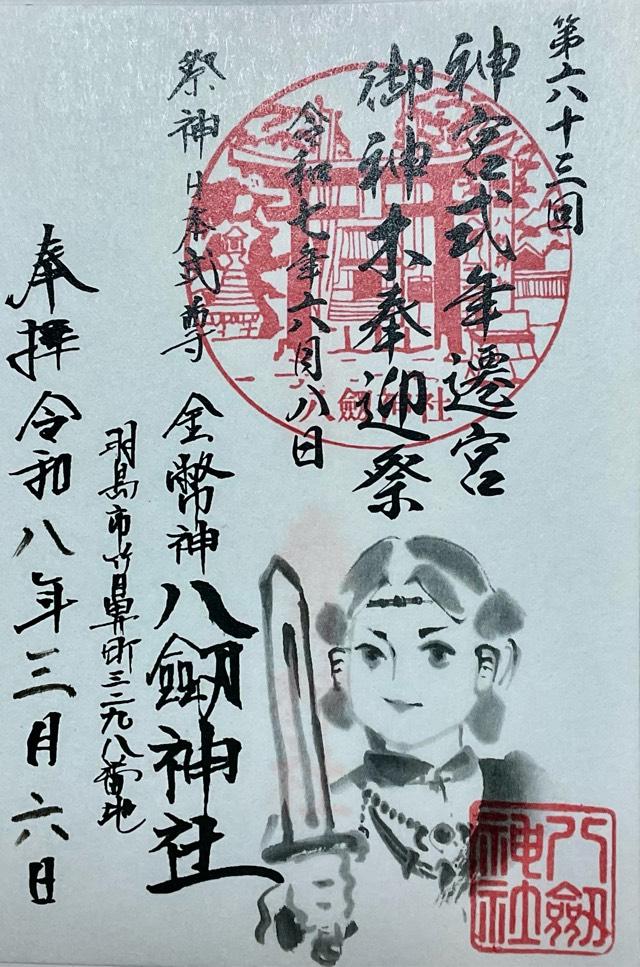 第六十三回
神宮式年遷宮
御神木奉迎祭
令和七年六月八日
八劔神社
祭神日本武尊
金幣神八劔神社
羽島市竹鼻町三二九八番地
奉拝令和八年三月六日
八劔
神社